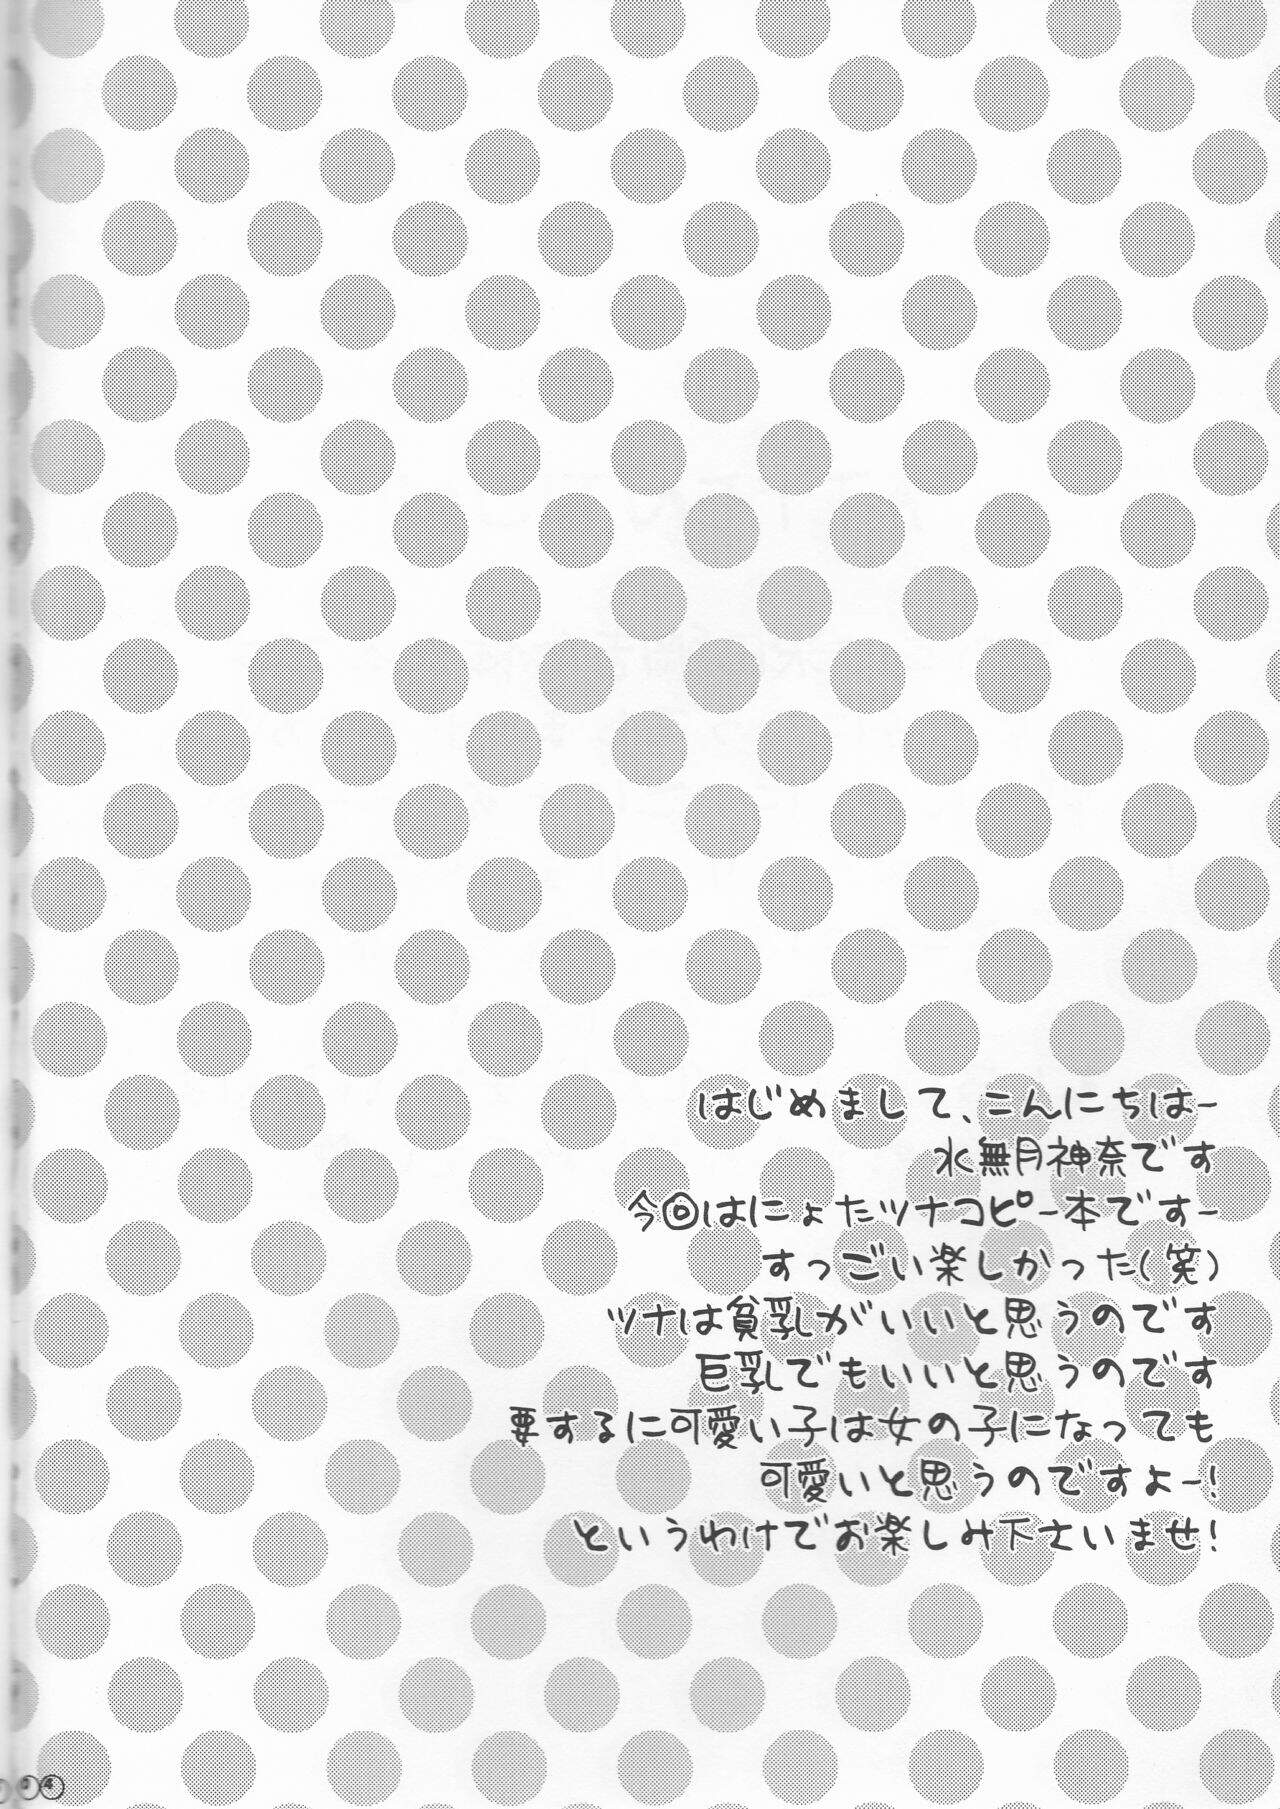 はじめまして、こんにちはー
水無月神奈です
今回はにょたツナコピー本ですー
すっごい楽しかった(笑)
ツナは貧乳がいいと思うのです
巨乳でもいいと思うのです
要するに可愛い子は女の子になっても
可愛いと思うのですよー!
というわけでお楽しみ下さいませ!